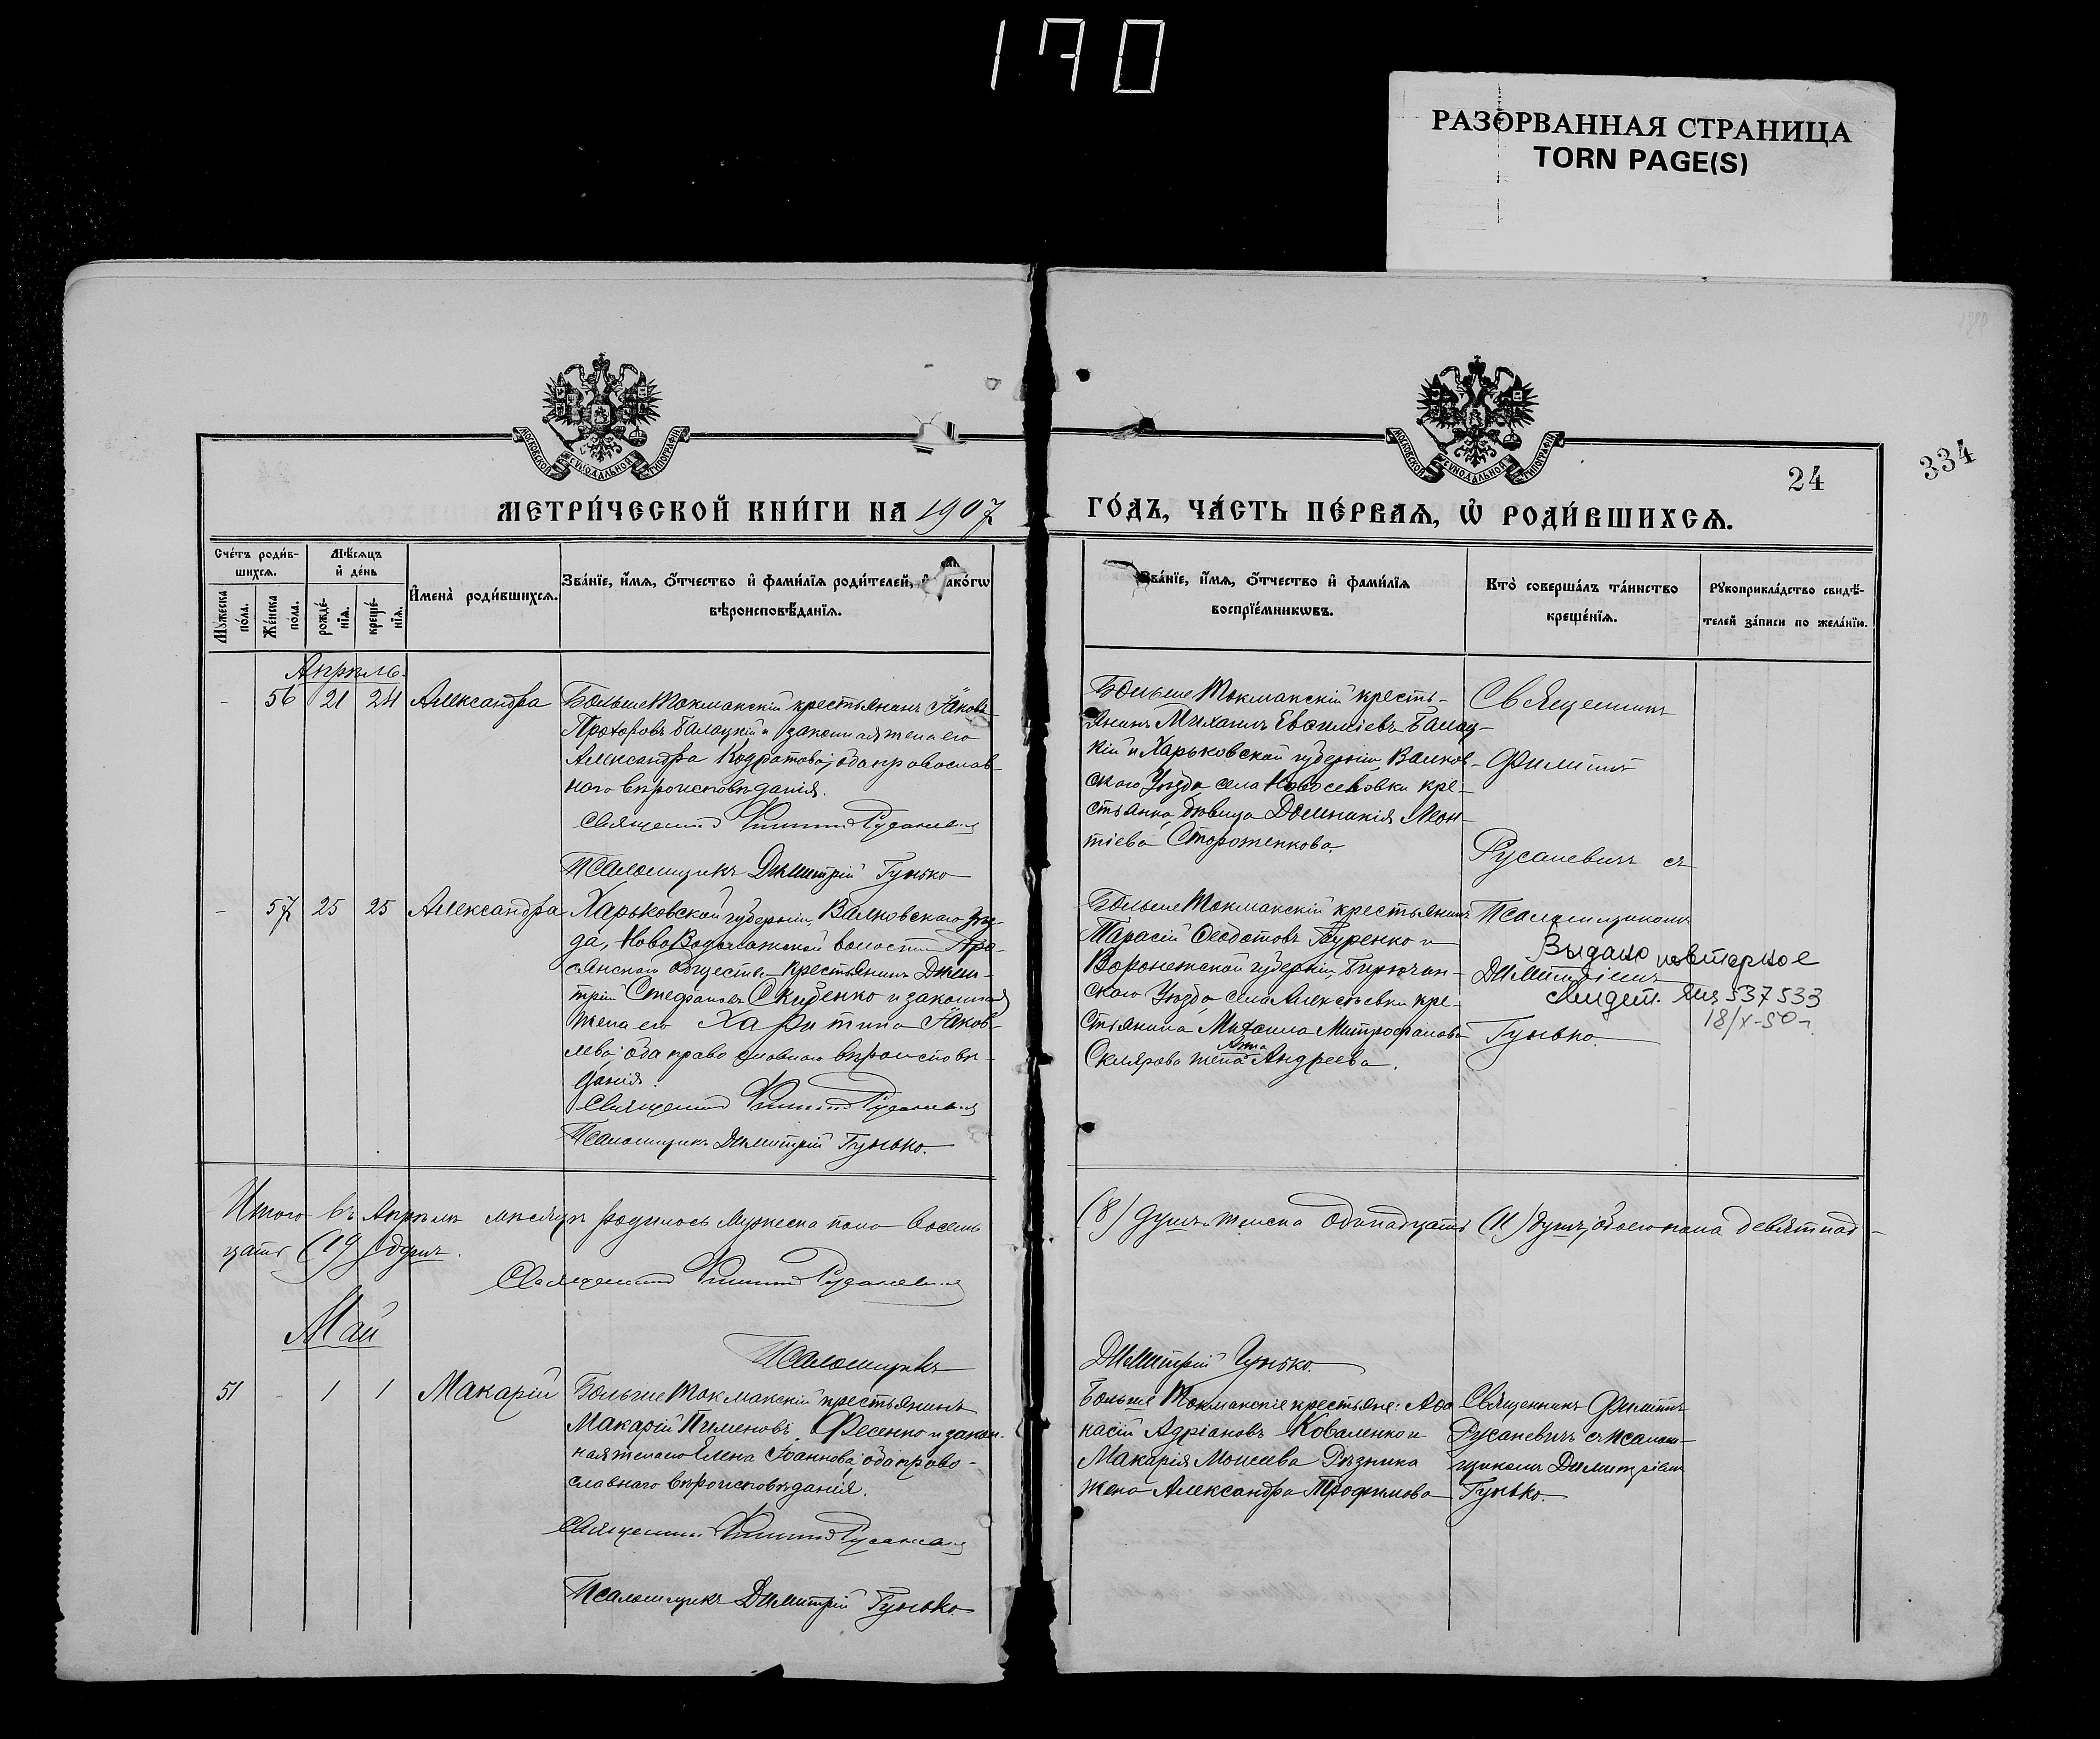 170
РАЗОРВАННАЯ СТРАНИЦА
TORN PAGE(S)
334
24
МОСКОВСКОЙ СѴНОДАЛЬНОЙ ТИПОГРАФІИ
МОСКОВСКОЙ СѴНОДАЛЬНОЙ ТИПОГРАФІИ
МЕТРИ́ЧЕСКОЙ КНИ́ГИ НА 1907
ГО́ДЪ, ЧА́СТЬ ПЕ́РВАѦ, Ѡ҆ РОДИ́ВШИХСѦ.
Сче́тъ роди́в-
шихсѧ.
Мꙋжеска по́ла.
Же́нска пола.
Мѣ́сѧцъ
и҆ де́нь
рожде́-
нїѧ.
креще́-
нїѧ.
И҆мена̀ роди́вшихсѧ.
Зва́нїе, и҆́мѧ, ѻ҆́тчество и҆ фами́лїѧ роди́телей, и҆ како́гѡ
вѣроисповѣ́данїѧ.
Зва́нїе, и҆́мѧ, ѻ҆́тчество и҆ фами́лїѧ
воспрїе́мникѡвъ.
Кто̀ соверша́лъ та́инство
креще́нїѧ.
Рꙋкоприкла́дство свидѣ́-
телей за́писи по жела́нїю.
Апрѣль.
- 56 21 24 Александра
Больше Токмакскій крестьянинъ Іаковъ
Прохоровъ Балацкій и законная жена его
Александра Кодратова; оба православ-
наго вѣроисповѣданія.
Священникъ Филиппъ Русаневичъ
Псаломщикъ Димитрій Гунько
Больше Токмакскій кресть-
янинъ Михаилъ Евѳиміевъ Балац-
кій и Харьковской губерніи, Валков-
скаго уѣзда села Новоселовки кре-
стьянка дѣвица Домникія Леон-
тіева Стороженкова
Священникъ
Филиппъ
Русаневичъ съ
- 57 25 25 Александра
Харьковской губерніи, Валковскаго уѣз-
да, Ново Водолажской волости
обществ. крестьянинъ Дими-
трій Стефановъ Скиденко и законная
жена его Харитина Іаков-
лева; оба православнаго вѣроисповѣ-
данія.
Священникъ Филиппъ Русаневичъ
Псаломщикъ Димитрій Гунько.
Больше Токмакскій крестьянинъ
Тарасій Ѳеодотовъ Гуренко и
Воронежской губерніи, Бирючан-
скаго уѣзда, села Алексѣевки кре-
стьянина Михаила Митрофанова
Склярова жена Анна Андреева.
Псаломщикомъ
Димитріемъ
Гунько.
Выдано повторное
свидет. ЯИ 537533
18/X-50 г.
Итого въ Апрѣлѣ мѣсяцѣ родилось мужеска пола восемь
(8) душъ, женска одинадцать (11) душъ, обоего пола девятнад-
цать (19) душъ.
Священникъ Филиппъ Русаневичъ
Псаломщикъ
Димитрій Гунько.
Май
51 - 1 1 Макарій
Больше Токмакскій крестьянинъ
Макарій Пименовъ Фесенко и закон-
ная жена его Елена Іоаннова; оба право-
славнаго вѣроисповѣданія.
Священникъ Филиппъ Русаневичъ
Псаломщикъ Димитрій Гунько.
Больше Токмакскіе крестьяне: Аѳа
насій Адріановъ Коваленко и
Макарія Моисеева Рѣзника
жена Александра Трофимова
Священникъ Филиппъ
Русаневичъ съ псалом-
щикомъ Димитріемъ
Гунько.